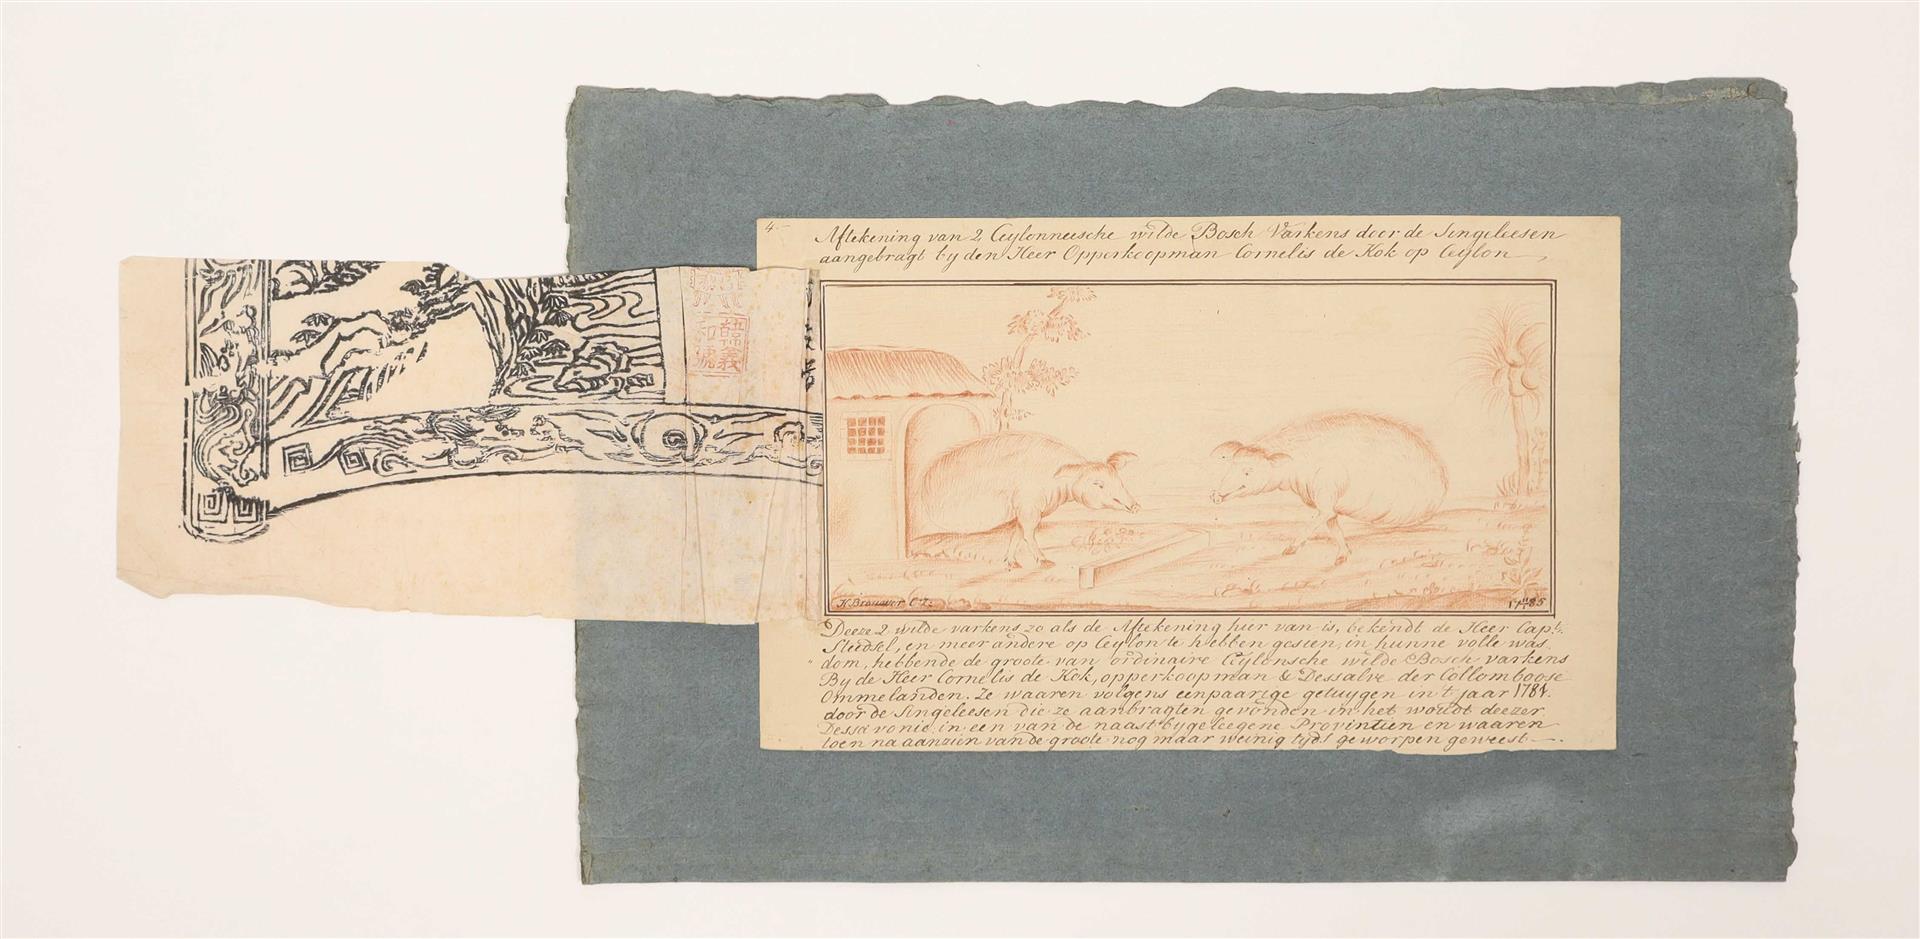 4.
Aftekening van 2 Ceylonneesche wilde Bosch Varkens door de Singeleesen
aangebragt by den Heer Opperkoopman Cornelis de Kok op Ceylon
語 和
義 號
H Brouwer
1785
Deeze 2 wilde varkens zo als de Aftekening hier van is, bekendt de Heer Capt:
en meer andere op Ceylon te hebben gesien, in hunne volle was
dom, hebbende de groote van ordinaire Ceylonsche wilde Bosch varkens
By de Heer Cornelis de Kok, opperkoopman & Dessalve der Collomboose
Ommelanden. Ze waaren volgens eenpaarige getuygen in 't jaar 1784.
door de Singeleesen die ze aanbragten gevonden in het woudt deezer
Dessavonie in een van de naastbygeleegene Provintien en waaren
toen na aanzien van de groote nog maar weinig tydt geworpen geweest